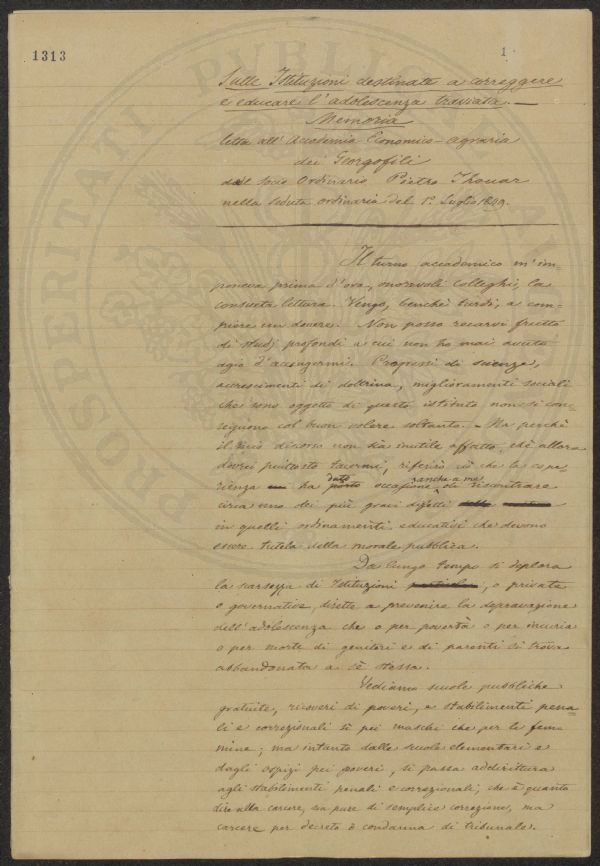 1313
1
Sulle Istituzioni destinate a correggere
e educare l'adolescenza traviata. —
Memoria
letta all'Accademia Economico-agraria
dei Georgofili
dal Socio Ordinario Pietro Thouar
nella seduta ordinaria del 1° Luglio 1849.
Il turno accademico m'im-
poneva prima d'ora, onorevoli Colleghi, la
consueta lettura. Vengo, benchè tardi, a com-
piere un dovere. Non posso recarvi frutto
di studj profondi a cui non ho mai avuto
agio d'accingermi. Progressi di scienze,
accrescimenti di dottrina, miglioramenti sociali
che sono oggetto di questo istituto non si con-
seguono col buon volere soltanto. — Ma perchè
il mio discorso non sia inutile affatto, chè allora
dovrei piuttosto tacermi, riferirò ciò che la espe-
dato anche a me
rienza ha porto occasione di riscontrare
circa uno dei più gravi difetti
in quelli ordinamenti educativi che devono
essere tutela della morale pubblica.
Da lungo tempo si deplora
la scarsezza di Istituzioni, o private
o governative, dirette a prevenire la depravazione
dell'adolescenza che o per povertà o per incuria
o per morte di genitori e di parenti si trova
abbandonata a sè stessa.
Vediamo scuole pubbliche
gratuite, ricoveri di poveri, e stabilimenti pena-
li e correzionali sì pei maschi che per le fem-
mine; ma intanto dalle scuole elementari e
dagli ospizi pei poveri, si passa addirittura
agli stabilimenti penali e correzionali; che è quanto
dire alla carcere, sia pure di semplice correzione, ma
carcere per decreto o condanna di tribunale.
PROSPERITATI PUBLICAE